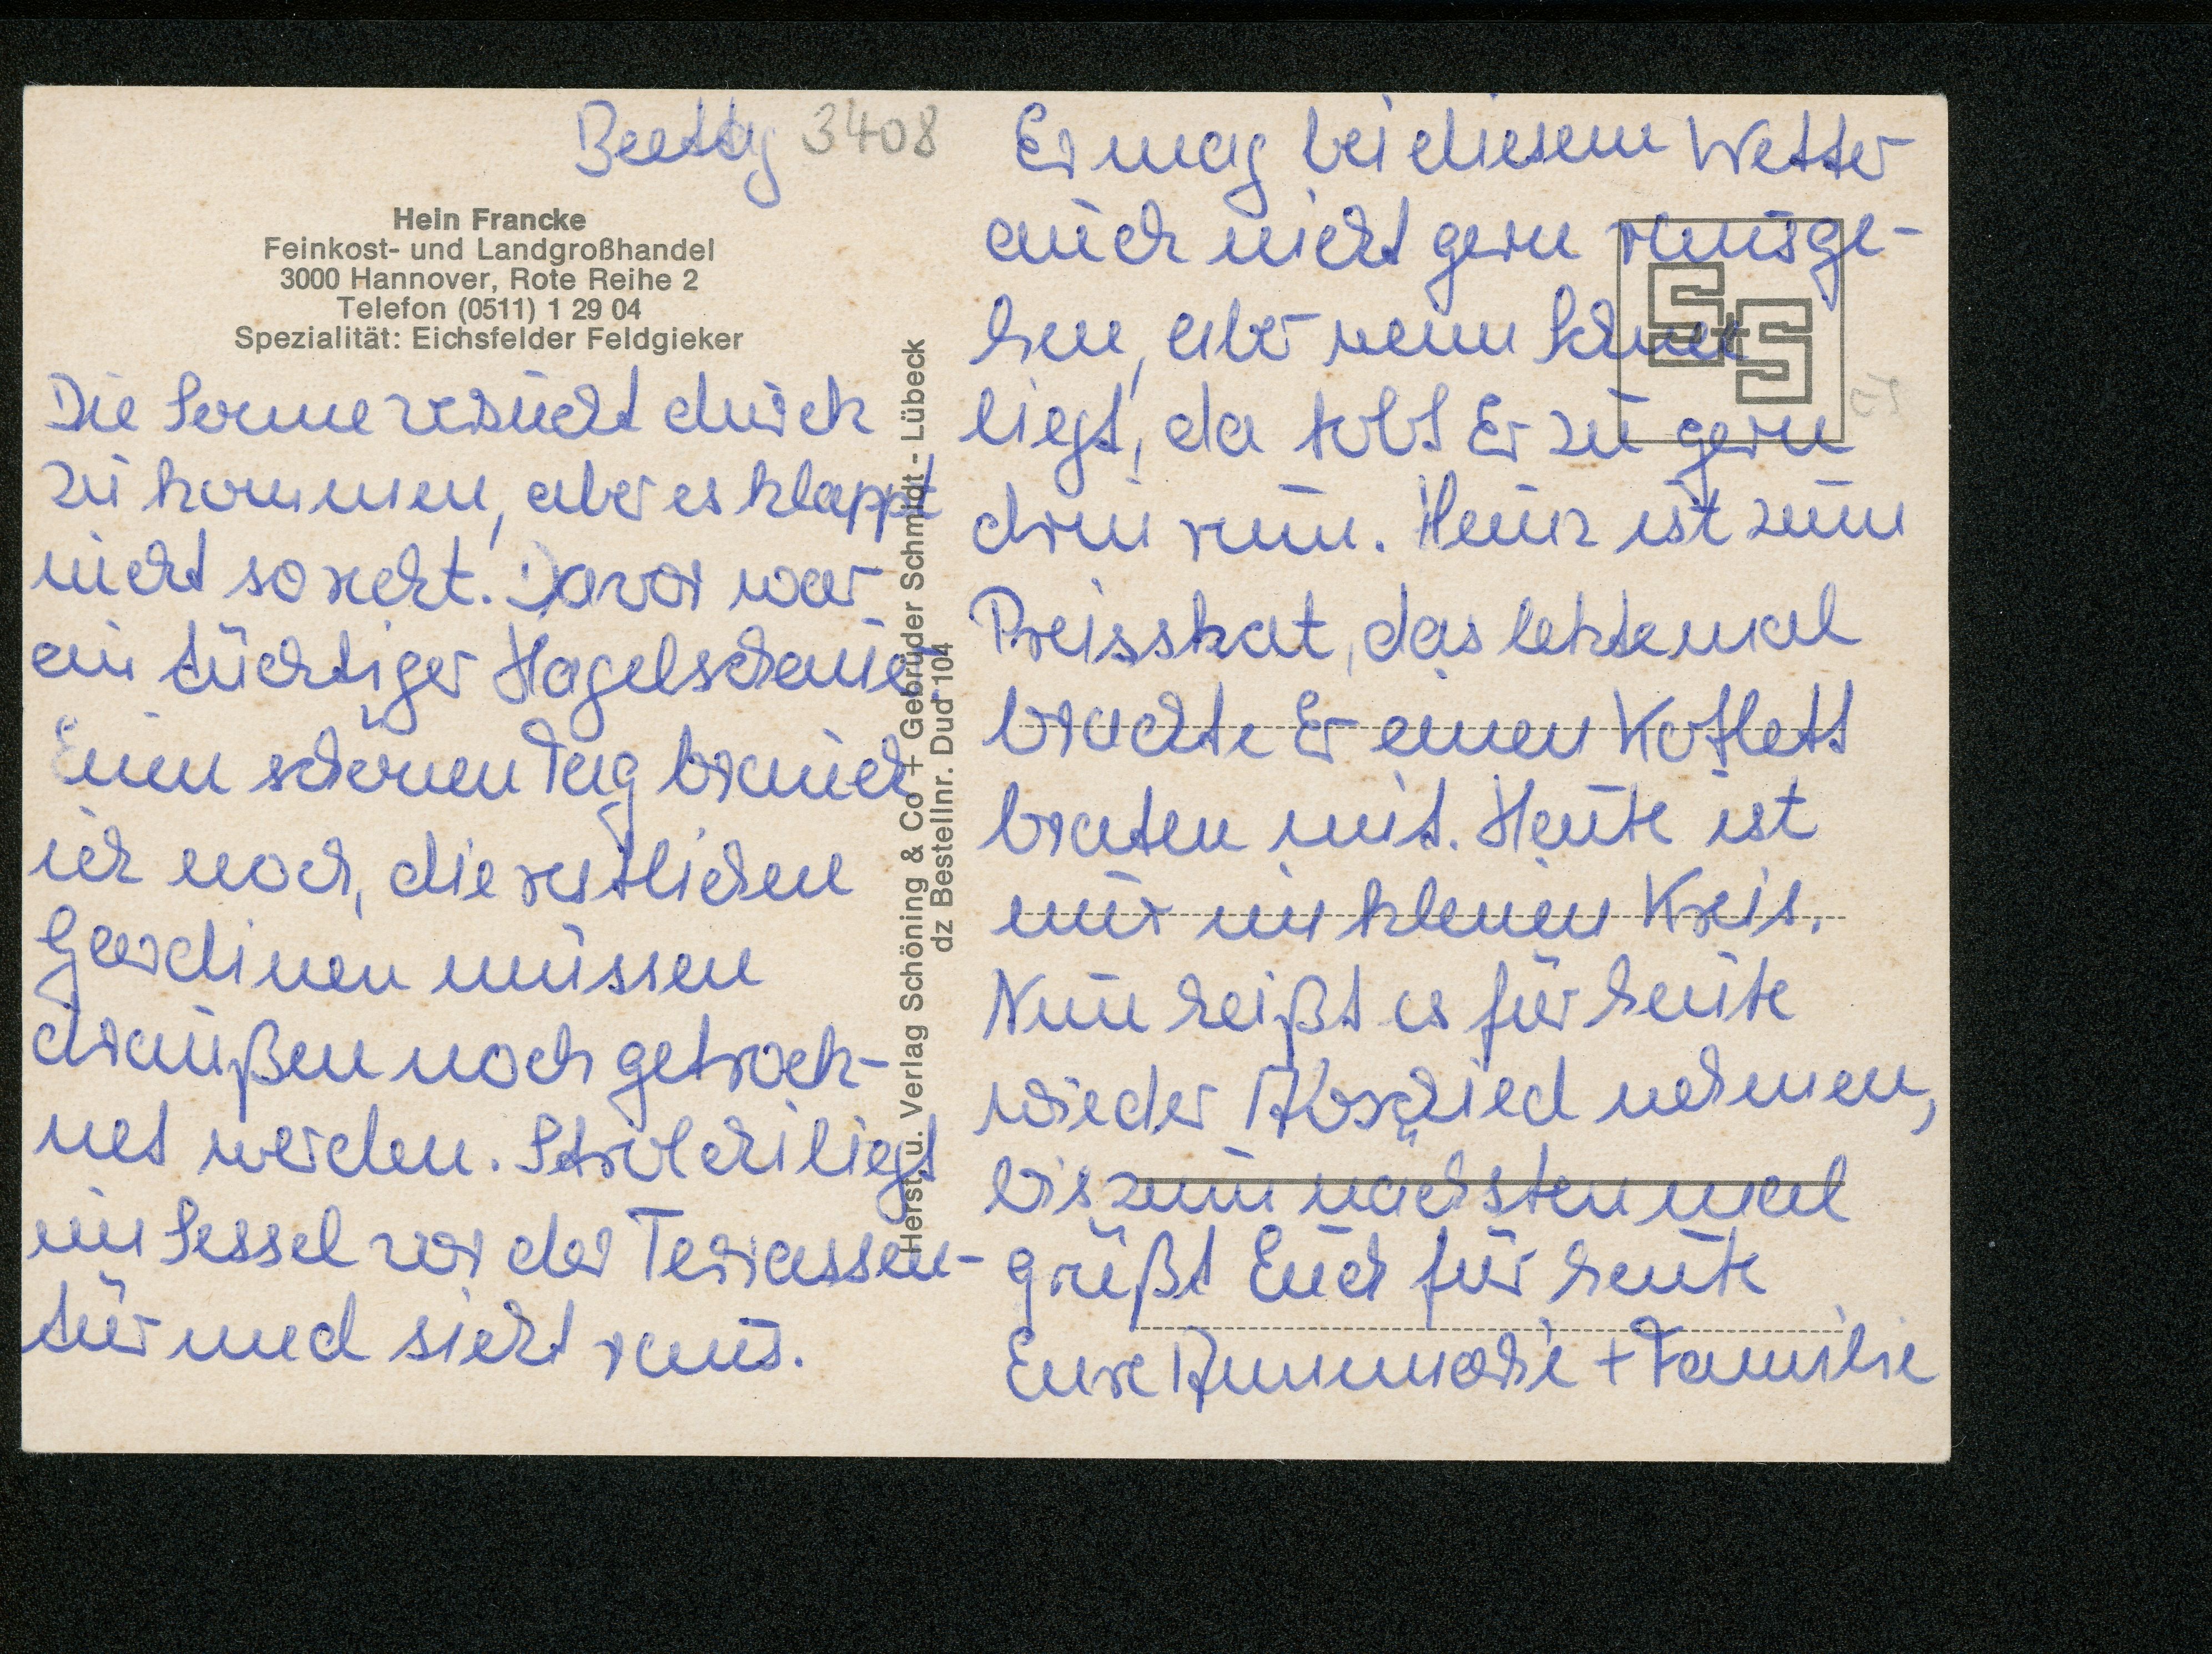 Beetty 3408
Hein Francke
Feinkost- und Landgroßhandel
3000 Hannover, Rote Reihe 2
Telefon (0511) 1 29 04
Spezialität: Eichsfelder Feldgieker
Die Sonne versucht durch
zu kommen, aber es klappt
nicht so recht. Davor war
ein tüchtiger Hagelschauer
Einen schönen Tag brauch
ich noch, die restlichen
Gardinen müssen
draußen noch getrock-
net werden. Strolchi liegt
im Sessel vor der Terrassen-
tür und sieht raus.
Herst. u. Verlag Schöning & Co + Gebrüder Schmidt - Lübeck
dz Bestellnr. Dud 104
Er mag bei diesem Wetter
auch nicht gern rausge-
hen, aber wenn Schnee
liegt, da tobt Er zu gern
drin rum. Heinz ist zum
Preisskat, das letztemal
brachte Er einen Kotlett
braten mit. Heute ist
nur im kleinen Kreis.
Nun heißt es für heute
wieder Abschied nehmen,
bis zum nächstenmal
grüßt Euch für heute
Eure Annmarie + Familie
S+S